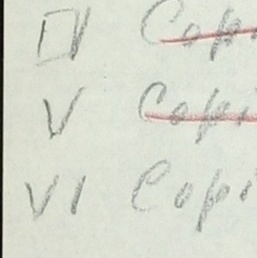 IV Copi
V Copi
VI Copi